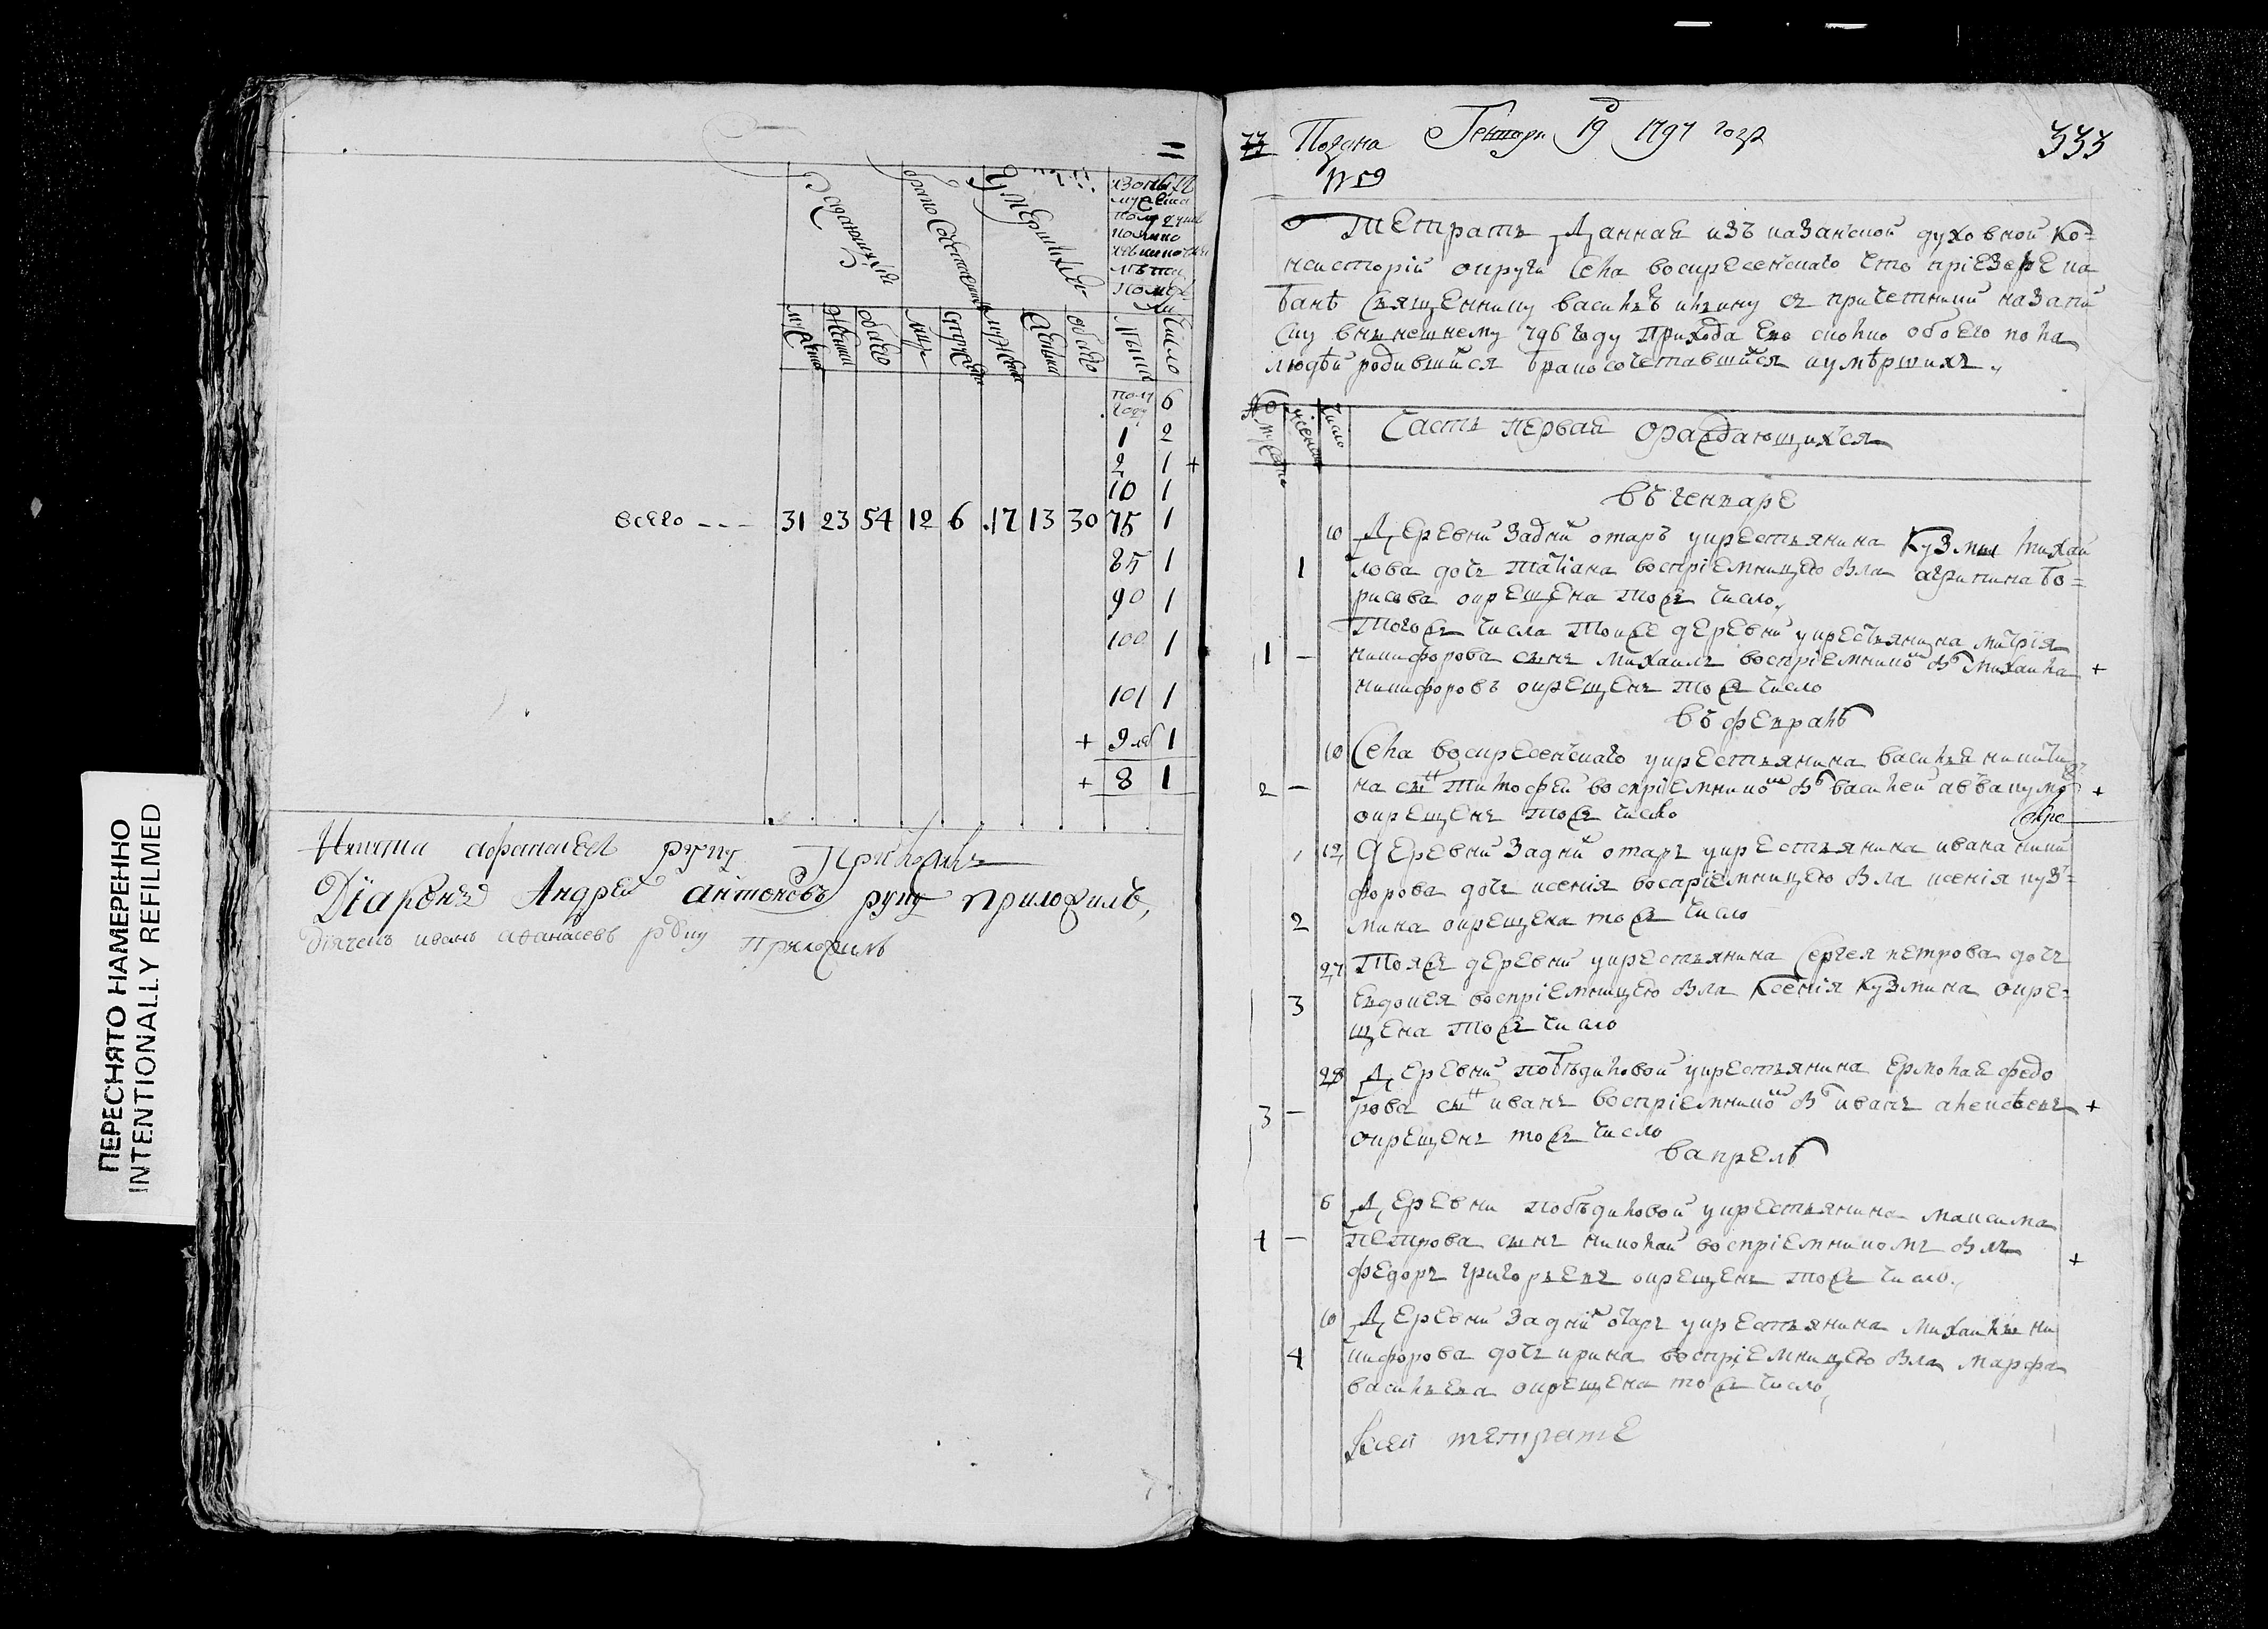 ПЕРЕСНЯТО НАМЕРЕННО
INTENTIONALLY REFILMED
мужеска
число
обаего
обаего
пол году 6
1 2
2 1 +
10 1
всего - - - 31 23 54 12 6 17 13 30 75 1
85 1
90 1
100 1
101 1
+ 9 1
+ 8 1
руку
Діаконъ Андрей антоновъ руку приложилъ,
иванъ афанасьевъ руку приложилъ
Подана Генваря 19 1797 года
333
№ 59
Тетрать Данная изъ казанской духовной ко=
нсисторіи округи Села воскресенскаго что при езере ка
банѣ Священнику с причетники на запи
ску 796 году Прихода Ево сколко обоего пола
людѣй родившихся бракосочетавшихся и умѣршихъ
число
Часть первая о раждающихся
въ генваре
10 Деревни Задней отаръ у крестьянина Кузмы михаи
1 лова дочь татіана воспріемницею была агрипина бо=
рисова окрещена тожъ число,
Тогожъ числа тоиже деревни у крестьянина митрія
1 — никифорова сынъ михаилъ воспріемникомъ былъ михаила +
никифоровъ окрещенъ тожъ число
въ февралѣ
10 Села воскресенскаго у крестьянина василья никити
2 — на сынъ тимофей воспріемникомъ былъ василей аввакумо +
окрещенъ тожъ число
12 Деревни Задней отаръ у крестьянина ивана ники
форова дочь ксенія воспріемницею была ксенія куз=
2 мина окрещена тожъ число
27 Тояжъ деревни у крестьянина Сергея петрова дочь
3 Евдокея воспріемницею была Ксенія Кузмина окре=
щена тожъ число
28 Деревни побѣдиловой у крестьянина ермолая федо
3 — рова сынъ иванъ воспріемникомъ былъ иванъ алексѣевъ +
окрещенъ тожъ число
в апрелѣ
6 Деревни побѣдиловой у крестьянина максима
4 — петрова сынъ николай воспріемникомъ былъ
федоръ григорьевъ окрещенъ тожъ число, +
10 Деревни Задней отаръ у крестьянина михаилы ни
4 кифорова дочь ирина воспріемницею была марфа
васильева окрещена тожъ число,
тетрате